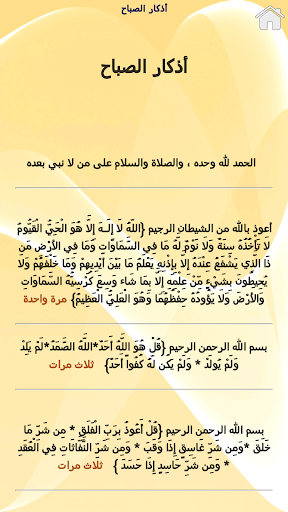 أذكار الصباح
أذكار الصباح
الحمد لله وحده ، والصلاة والسلام على من لا نبي بعده
أعوذ بالله من الشيطان الرجيم {اللّهُ لاَ إِلَـهَ إِلاَّ هُوَ الْحَيُّ الْقَيُّومُ
لاَ تَأْخُذُهُ سِنَةٌ وَلاَ نَوْمٌ لَّهُ مَا فِي السَّمَاوَاتِ وَمَا فِي الأَرْضِ مَن
ذَا الَّذِي يَشْفَعُ عِنْدَهُ إِلاَّ بِإِذْنِهِ يَعْلَمُ مَا بَيْنَ أَيْدِيهِمْ وَمَا خَلْفَهُمْ وَلاَ
يُحِيطُونَ بِشَيْءٍ مِّنْ عِلْمِهِ إِلاَّ بِمَا شَاء وَسِعَ كُرْسِيُّهُ السَّمَاوَاتِ
وَالأَرْضَ وَلاَ يَؤُودُهُ حِفْظُهُمَا وَهُوَ الْعَلِيُّ الْعَظِيمُ} مرة واحدة
بسم الله الرحمن الرحيم {قُلْ هُوَ اللَّهُ أَحَدٌ*اللَّهُ الصَّمَدُ*لَمْ يَلِدْ
وَلَمْ يُولَدْ * وَلَمْ يَكُن لَّهُ كُفُواً أَحَدٌ} ثلاث مرات
بسم الله الرحمن الرحيم {قُلْ أَعُوذُ بِرَبِّ الْفَلَقِ * مِن شَرِّ مَا
خَلَقَ *وَمِن شَرِّ غَاسِقٍ إِذَا وَقَبَ * وَمِن شَرِّ النَّفَّاثَاتِ فِي الْعُقَدِ
* وَمِن شَرِّ حَاسِدٍ إِذَا حَسَدَ } ثلاث مرات